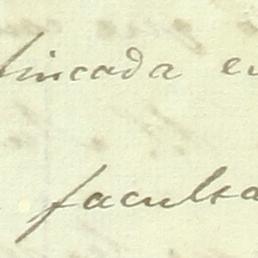 fincada en
faculta